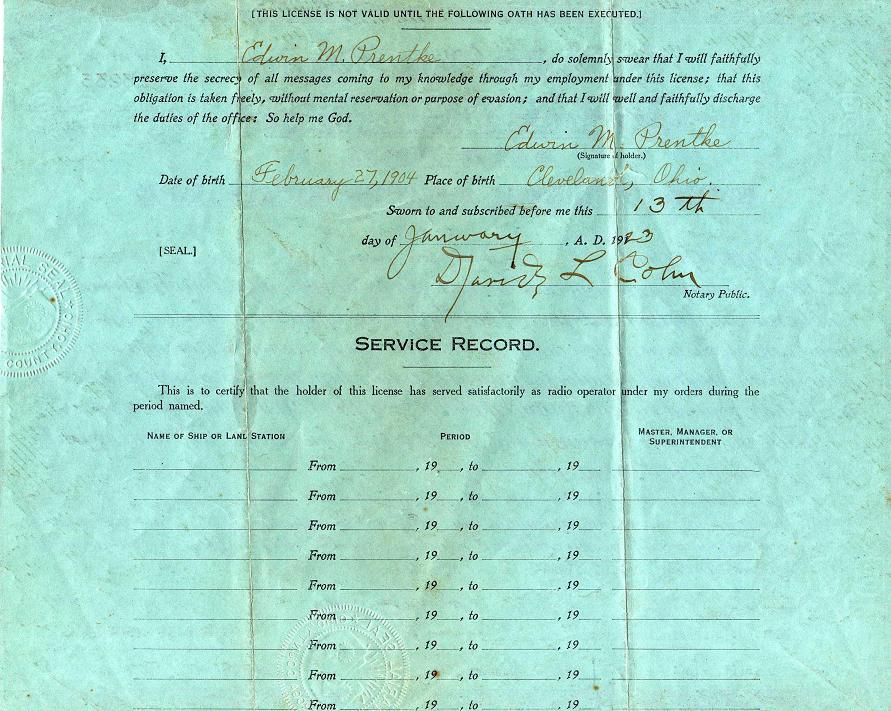 [THIS LICENSE IS NOT VALID UNTIL THE FOLLOWING OATH HAS BEEN EXECUTED.]
I, Edwin M. Prentke, do solemnly swear that I will faithfully
preserve the secrecy of all messages coming to my knowledge through my employment under this license; that this
obligation is taken freely, without mental reservation or purpose of evasion; and that I will well and faithfully discharge
the duties of the office: So help me God.
Edwin M. Prentke
(Signature of holder.)
Date of birth February 27, 1904 Place of birth Cleveland, Ohio.
Sworn to and subscribed before me this 13th
[SEAL.] day of January, A. D. 1923
David L Cohn
Notary Public.
SERVICE RECORD.
This is to certify that the holder of this license has served satisfactorily as radio operator under my orders during the
period named.
NAME OF SHIP OR LAND STATION PERIOD MASTER, MANAGER, OR
SUPERINTENDENT
From , 19 , to , 19
From , 19 , to , 19
From , 19 , to , 19
From , 19 , to , 19
From , 19 , to , 19
From , 19 , to , 19
From , 19 , to , 19
From , 19 , to , 19
From , 19 , to , 19
SEAL
COUNTY, OHIO